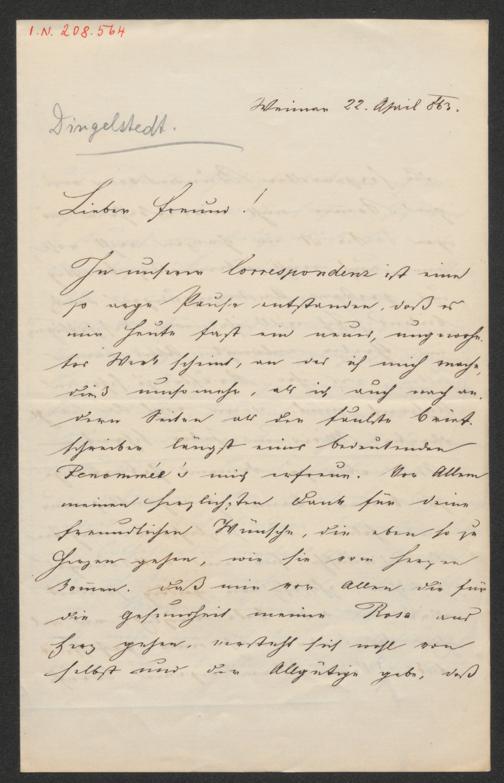 I.N. 208.564
Weimar 22. April 863.
Dingelstedt.
Lieber Freund!
In unserer Correspondenz ist eine
so arge Pause entstanden, daß es
mir heute fast ein neues, ungewohn-
tes Werk scheint, an das ich mich mache,
dieß umsomehr, als ich auch nach an-
dern Seiten als der faulste Brief-
schreiber längst eines bedeutenden
Renommée's mich erfreue. Vor Allem
meinen herzlichsten Dank für deine
freundlichen Wünsche, die eben so zu
Herzen gehen, wie sie vom Herzen
kommen. Daß mir vor Allen die für
die Gesundheit meiner Rosa ans
Herz gehen, versteht sich wohl von
selbst und der Allgütige gebe, daß